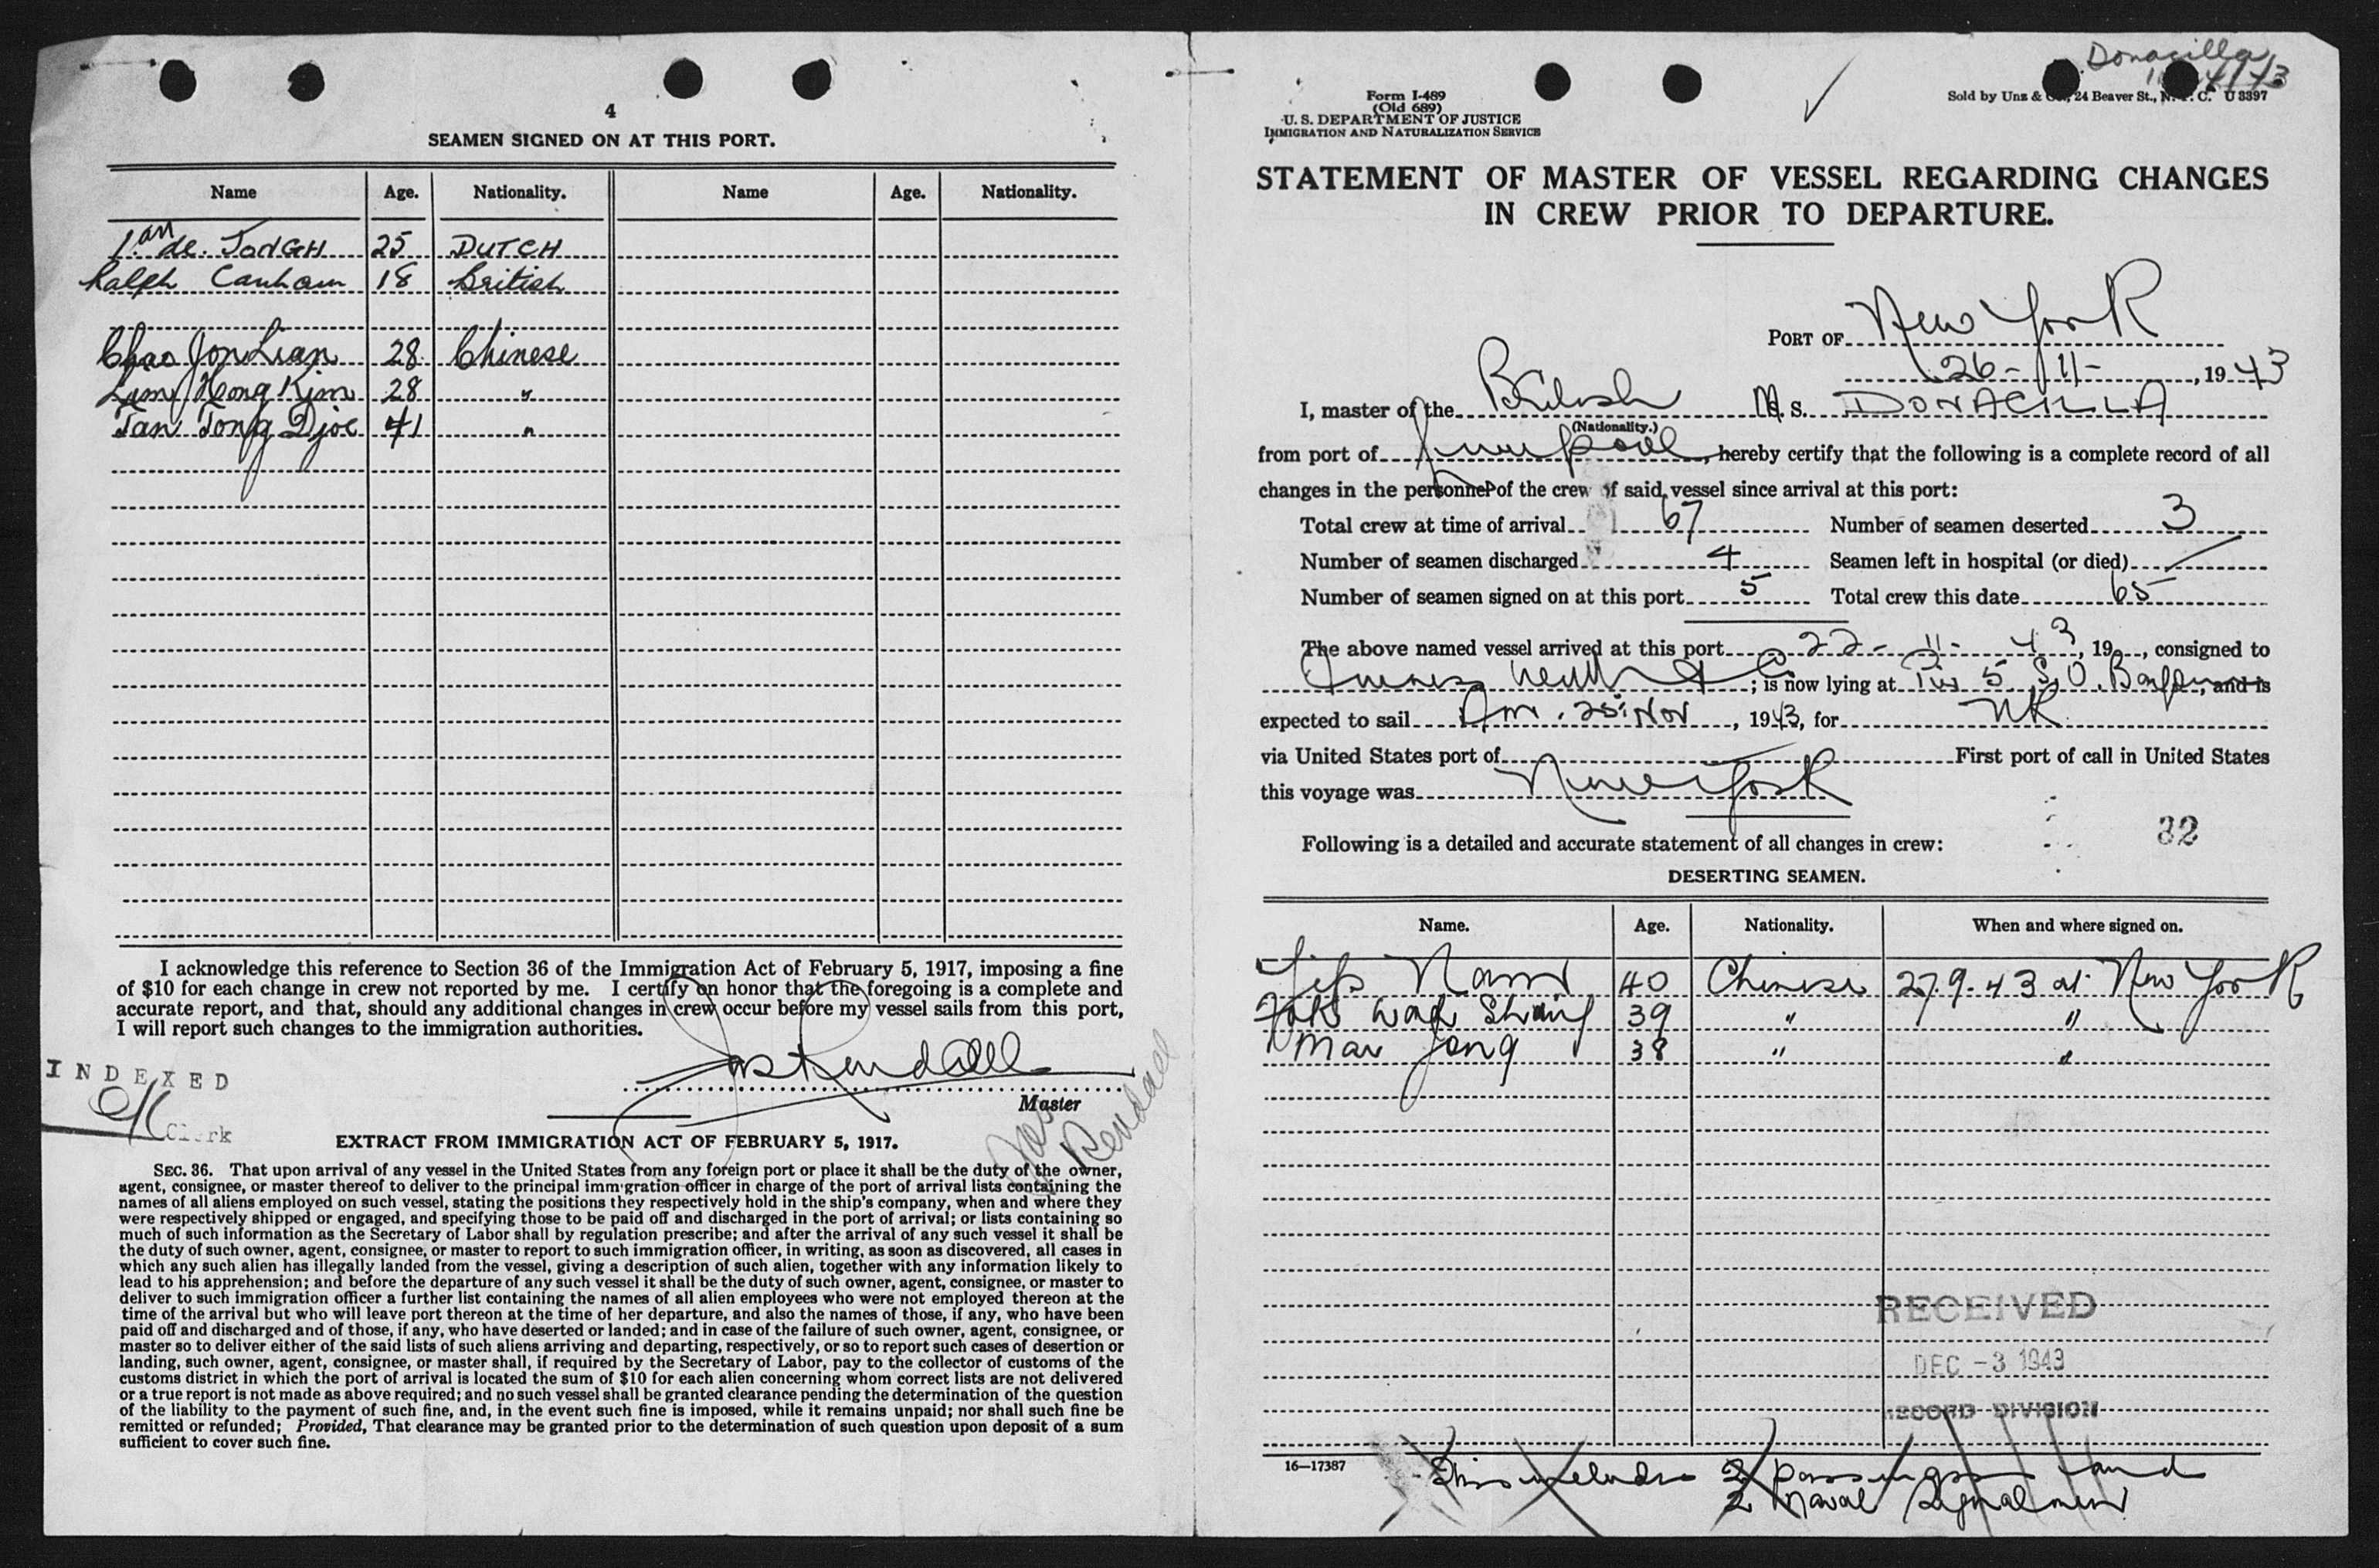 4
SEAMEN SIGNED ON AT THIS PORT.
Name Age. Nationality. Name Age. Nationality.
de. JONGH 25 DUTCH
Ralph Canham 18 British
Chao Jon Lian 28 Chinese
Lim Hong Kim 28 "
Tan Tong Djoe 41 "
I acknowledge this reference to Section 36 of the Immigration Act of February 5, 1917, imposing a fine
of $10 for each change in crew not reported by me. I certify on honor that the foregoing is a complete and
accurate report, and that, should any additional changes in crew occur before my vessel sails from this port,
I will report such changes to the immigration authorities.
INDEXED
Clerk
Kendall
Master
Jas Kendall
EXTRACT FROM IMMIGRATION ACT OF FEBRUARY 5, 1917.
SEC. 36. That upon arrival of any vessel in the United States from any foreign port or place it shall be the duty of the owner,
agent, consignee, or master thereof to deliver to the principal immigration officer in charge of the port of arrival lists containing the
names of all aliens employed on such vessel, stating the positions they respectively hold in the ship's company, when and where they
were respectively shipped or engaged, and specifying those to be paid off and discharged in the port of arrival; or lists containing so
much of such information as the Secretary of Labor shall by regulation prescribe; and after the arrival of any such vessel it shall be
the duty of such owner, agent, consignee, or master to report to such immigration officer, in writing, as soon as discovered, all cases in
which any such alien has illegally landed from the vessel, giving a description of such alien, together with any information likely to
lead to his apprehension; and before the departure of any such vessel it shall be the duty of such owner, agent, consignee, or master to
deliver to such immigration officer a further list containing the names of all alien employees who were not employed thereon at the
time of the arrival but who will leave port thereon at the time of her departure, and also the names of those, if any, who have been
paid off and discharged and of those, if any, who have deserted or landed; and in case of the failure of such owner, agent, consignee, or
master so to deliver either of the said lists of such aliens arriving and departing, respectively, or so to report such cases of desertion or
landing, such owner, agent, consignee, or master shall, if required by the Secretary of Labor, pay to the collector of customs of the
customs district in which the port of arrival is located the sum of $10 for each alien concerning whom correct lists are not delivered
or a true report is not made as above required; and no such vessel shall be granted clearance pending the determination of the question
of the liability to the payment of such fine, and, in the event such fine is imposed, while it remains unpaid; nor shall such fine be
remitted or refunded; Provided, That clearance may be granted prior to the determination of such question upon deposit of a sum
sufficient to cover such fine.
Donacilla
Form I-489
(Old 689)
U. S. DEPARTMENT OF JUSTICE
IMMIGRATION AND NATURALIZATION SERVICE
Sold by Unz & Co., 24 Beaver St., N. Y. C. U 3397
STATEMENT OF MASTER OF VESSEL REGARDING CHANGES
IN CREW PRIOR TO DEPARTURE.
PORT OF New York
26-11-, 1943
I, master of the British M. S. DONACILLA
(Nationality.)
from port of Liverpool, hereby certify that the following is a complete record of all
changes in the personnel of the crew of said vessel since arrival at this port:
Total crew at time of arrival 67 Number of seamen deserted 3
Number of seamen discharged 4 Seamen left in hospital (or died) /
Number of seamen signed on at this port 5 Total crew this date 65
The above named vessel arrived at this port 22-11-43, 19, consigned to
; is now lying at Pier 5 S.O. , and is
expected to sail 25 Nov, 1943, for UK
via United States port of First port of call in United States
this voyage was New York
32
Following is a detailed and accurate statement of all changes in crew:
DESERTING SEAMEN.
Name. Age. Nationality. When and where signed on.
Nam 40 Chinese 27.9.43 at New York
Fok Wah Shang 39 " "
Mar Jong 38 " "
RECEIVED
DEC -3 1943
RECORD DIVISION
16—17387
This includes 2 passengers and
2 Naval Signalmen